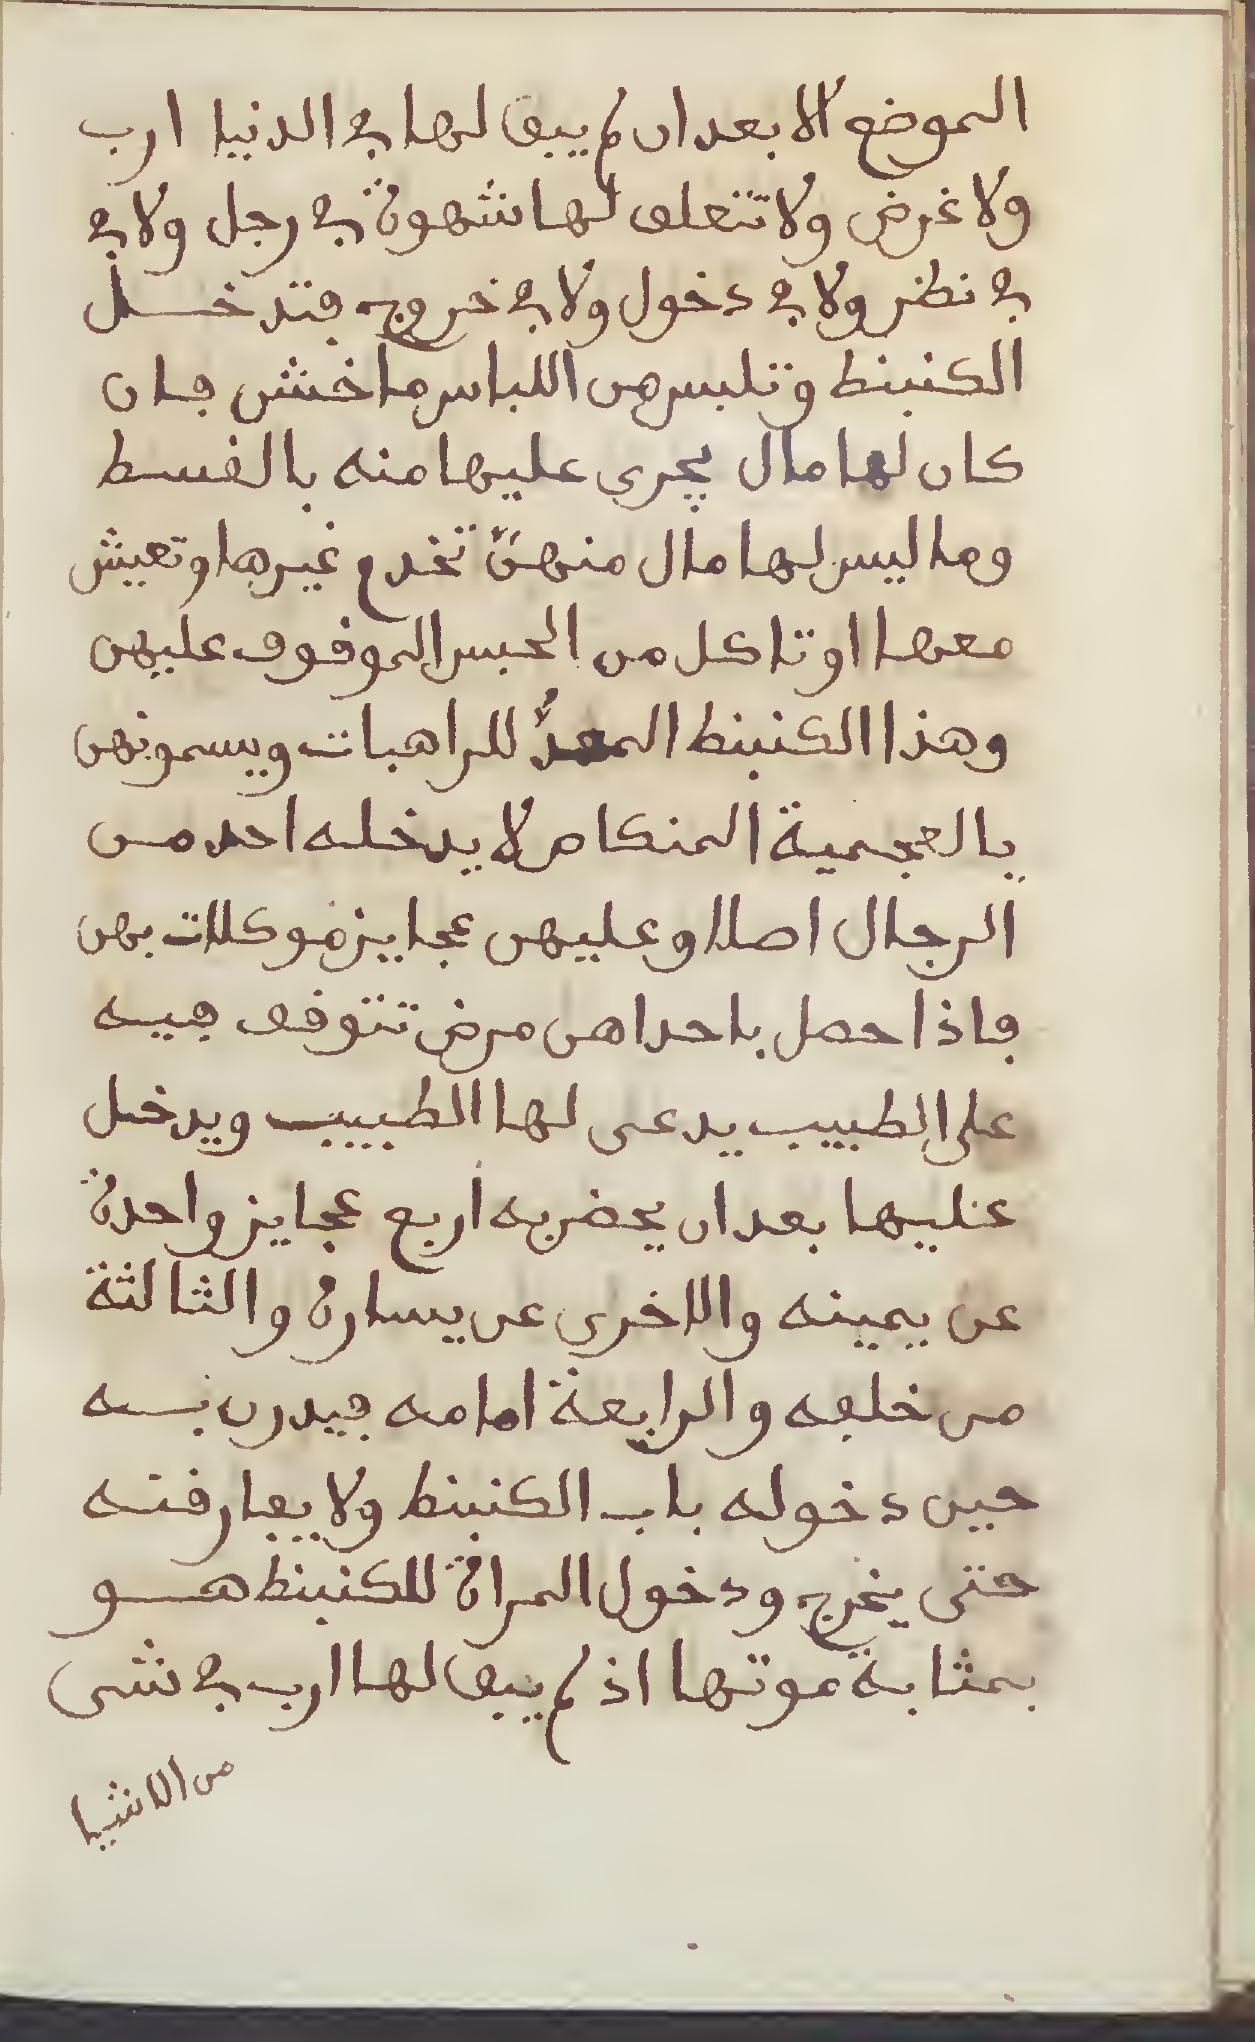 الموضع الا بعد ان لم يبق لها في الدنيا ارب
ولا غرض ولا تتعلق لها شهوة في رجل ولا في
في نظر ولا في دخول ولا في خروج فتدخل
الكنبنط وتلبس من اللباس ما خشن فان
كان لها مال يجري عليها منه بالقسط
وما ليس لها مال منهنّ تخدم غيرها وتعيش
معها او تاكل من الحبس الموقوف عليهن
وهذا الكنبنط المعدُّ للراهبات ويسمونهن
بالعجمية المنكاص لا يدخله احد من
الرجال اصلا وعليهن عجايز موكلات بهن
فاذا حصل باحداهن مرض تتوقف فيه
على الطبيب يدعى لها الطبيب ويدخل
عليها بعد ان يحضر به اربع عجايز واحدة
عن يمينه والاخرى عن يساره والثالثة
من خلفه والرابعة امامه فيدرن به
حين دخوله باب الكنبنط ولا يفارقنه
حتى يخرج ودخول المراة للكنبنط هو
بمثابة موتها اذ لم يبق لها ارب في شي
من الاشيا